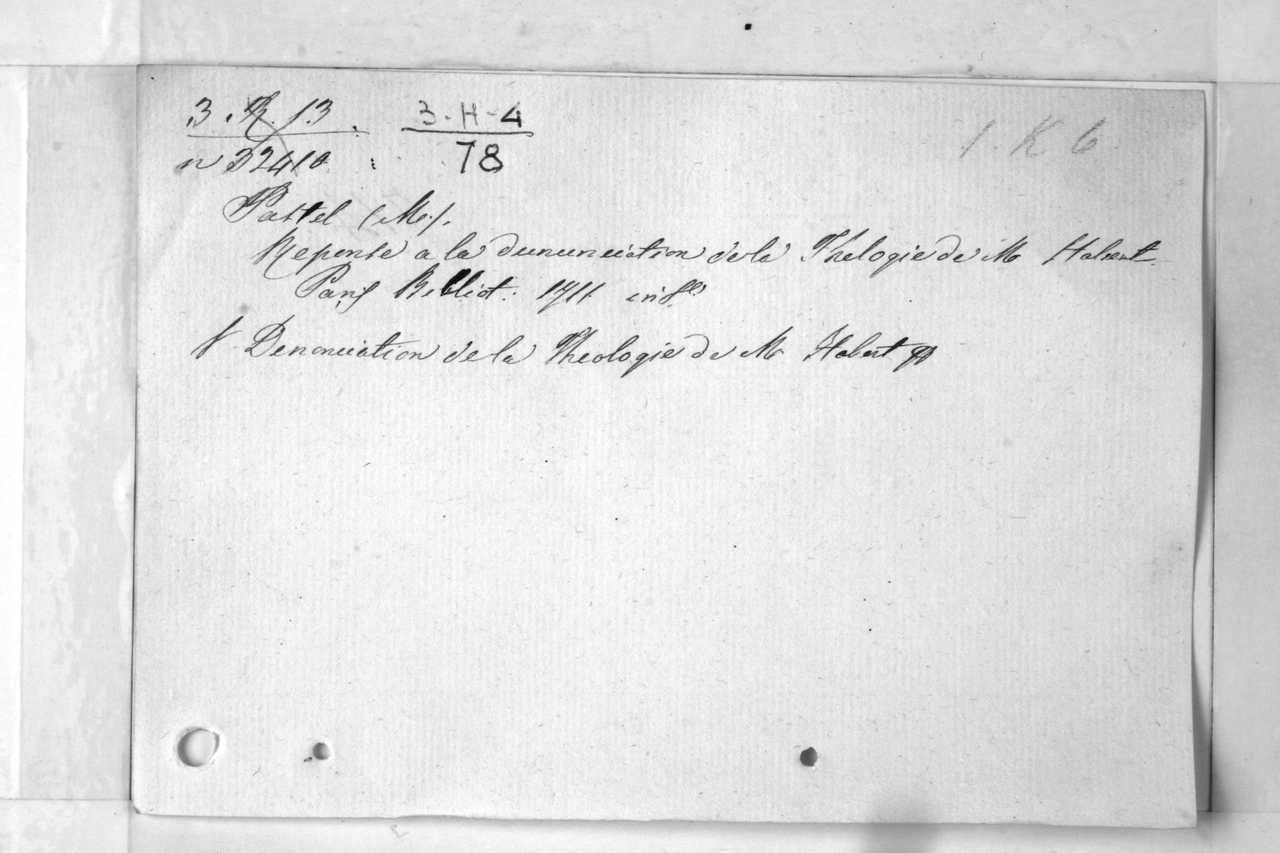 3. R. 13. 3-H-4 1. K 6
n 32410 78
Pastel (M.).
Reponse a la dununciation de la Thelogie de M Habert
Paris Billiot. 1711 in 8°
Denonciation de la Theologie de M Habert